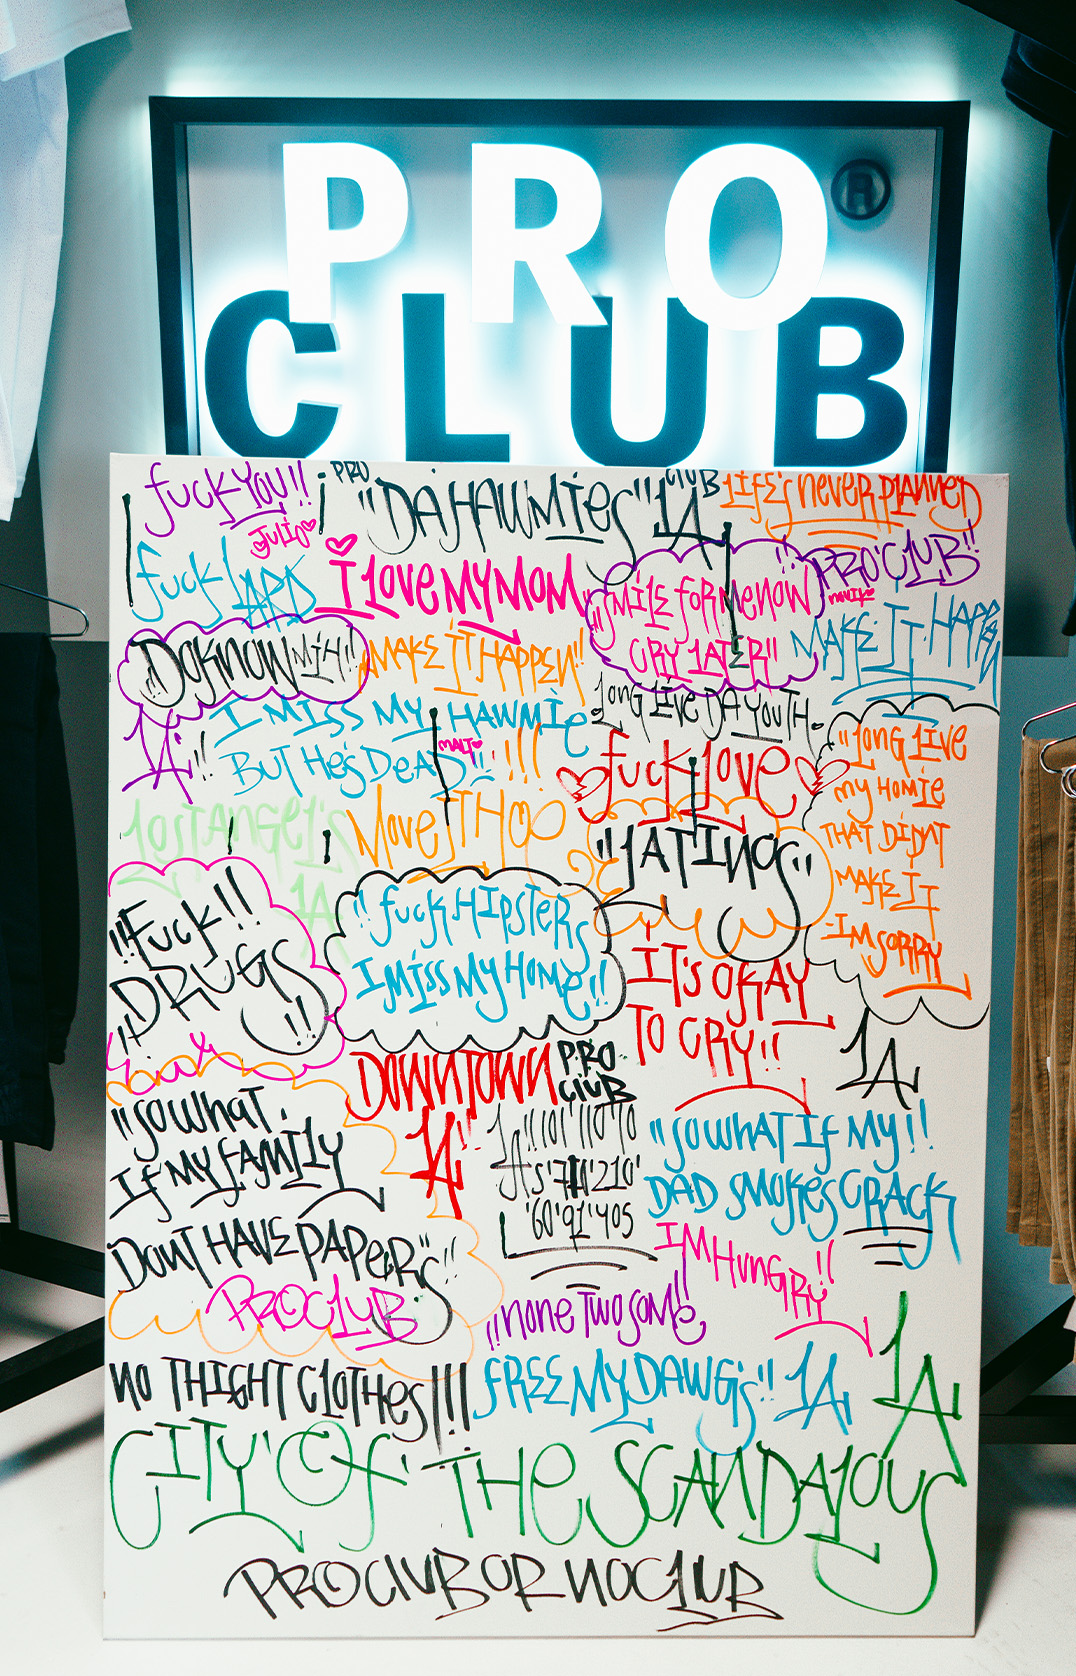 PRO®
CLUB
fuck YOU!!
JULIO
PRO
"DA HAWMIES" LA
CLUB
LIFE'S never PLANNED
fuck LAPD
I LOVE MY MOM
"SMILE FOR ME NOW
CRY LATER"
PRO CLUB!!
MAKE IT HAPPEN
"DO KNOW MIH"
MAKE IT HAPPEN!!
LONG LIVE DA YOUTH.
I MISS MY HAWMIE
BUT HE'S DEAD"!!!
MALI
LA"
fuck LOVE
"LONG LIVE
MY HOMIE
THAT DIDNT
MAKE IT
-IM SORRY
LOST ANGEL'S
LA
Move IT HOO
"LATINOS"
"FUCK!!
DRUGS"
"fuck HIPSTERS
I MISS MY HOME"
IT'S OKAY
TO CRY!!
LA
DOWNTOWN
LA
PRO
CLUB
"SO WHAT
IF MY FAMILY
DON'T HAVE PAPERS"
PRO CLUB
LA"101'110'10
'5'710'210'
'60'91'405
"SO WHAT IF MY!!
DAD SMOKES CRACK
IM HUNGRY!!
"NONE TWO SOME
NO THIGHT CLOTHES!!!
FREE MY DAWGS" LA
LA
CITY OF THE SCANDALOUS
PRO CLUB OR NO CLUB